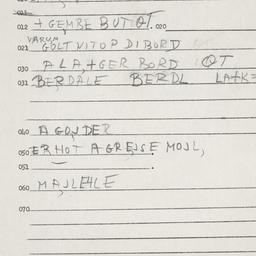 012 + GEMBE BUT OT. 020
VARUM
021 GOLT VITOP DIBORD
030 A LA,+GER BORD OT
031 BERDALE BERDL LA+K=
040 A GONDER
050 ER HOT A GREJSE MOJL,
051 .
060 MAJLEHLE
070